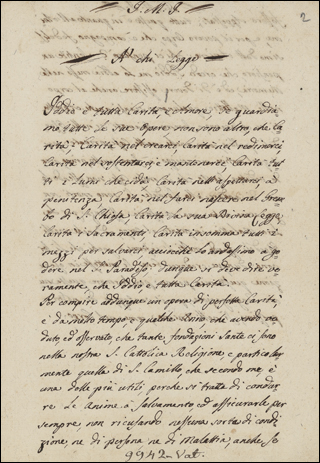 J. M. J.
2
A' chi Legge
Iddio è tutta Carità e Amore, se guardia
mo tutte le sue Opere non sono altro, che Ca
rità, Carità nel crearci, Carità nel redimerci
Carità nel sostentarci e mantenerci, Carità tut
ti i lumi che ci dà, Carità nell'aspettarci, a
penitenza Carità, nel farci nascere nel
di S. Chiesa Carità, a sua Divina Legge
Carità i Sacramenti Carità insomma tutti i
mezzi per salvarci acciocchè lo andassimo a go
dere nel S. Paradiso; dunque si deve dire ve
ramente, che Iddio è tutta Carità.
Per compire addunque un opera di perfetta Carità,
è da molto tempo e qualche Anno che avendo ve
duto, ed osservato che tante fondazioni Sante ci sono
nella nostra S. Cattolica Religione, e particolar
mente quella di S. Camillo che secondo me, è
una delle più utili, perche si tratta di condur
re le Anime a Salvamento, ed assicurarle per
sempre, non ricusando nessuna sorta di condi
zione, ne di persone ne di Malattia, anche se
9942-Vat.